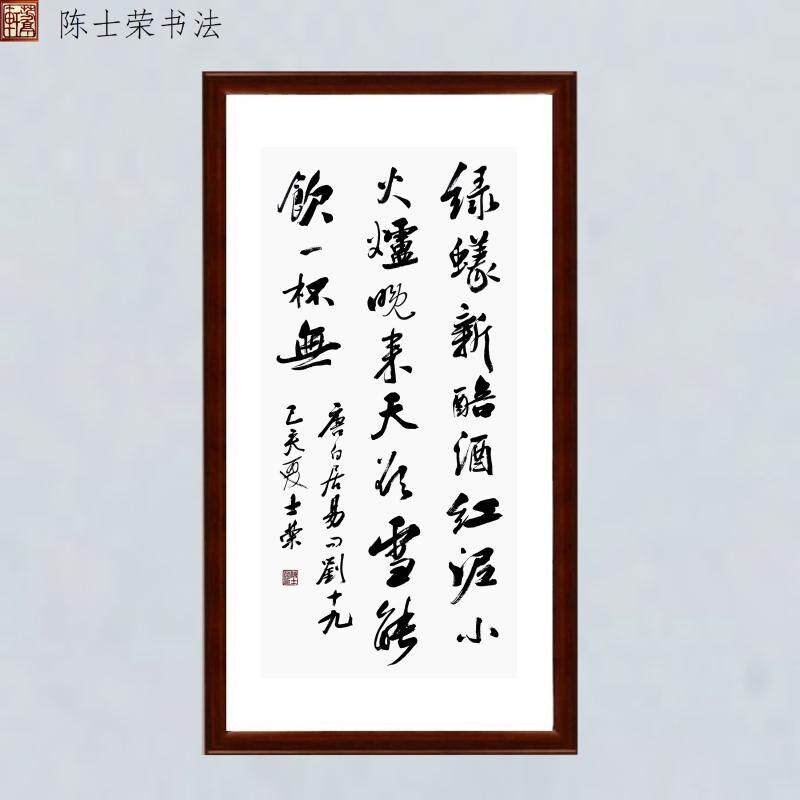 陈士荣书法
绿蟻新醅酒红泥小
火爐晚来天欲雪能
飲一杯無
唐白居易问劉十九
己亥夏士荣